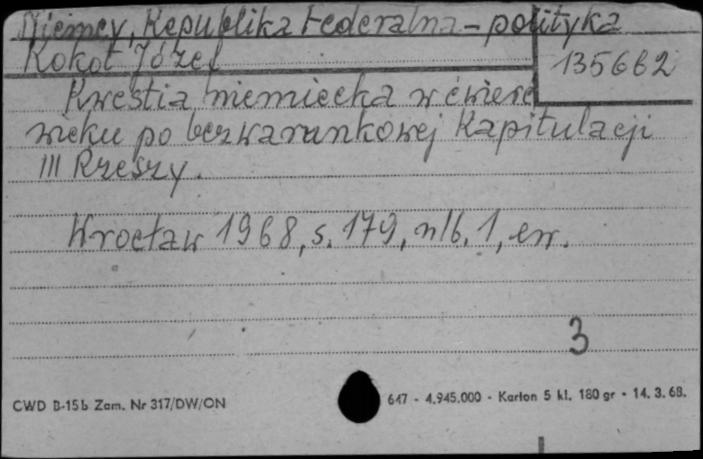 Niemcy, Republika Federalna - polityka
Kokot Józef
135662
Kwestia niemiecka w ćwierć
wieku po bezwarunkowej Kapitulacji
III Rzeszy.
Wrocław 1968, s. 179, nlb. 1, err.
3
CWD B-15b Zam. Nr 317/DW/ON
647 - 4.945.000 - Karton 5 kl. 180 gr - 14. 3. 68.